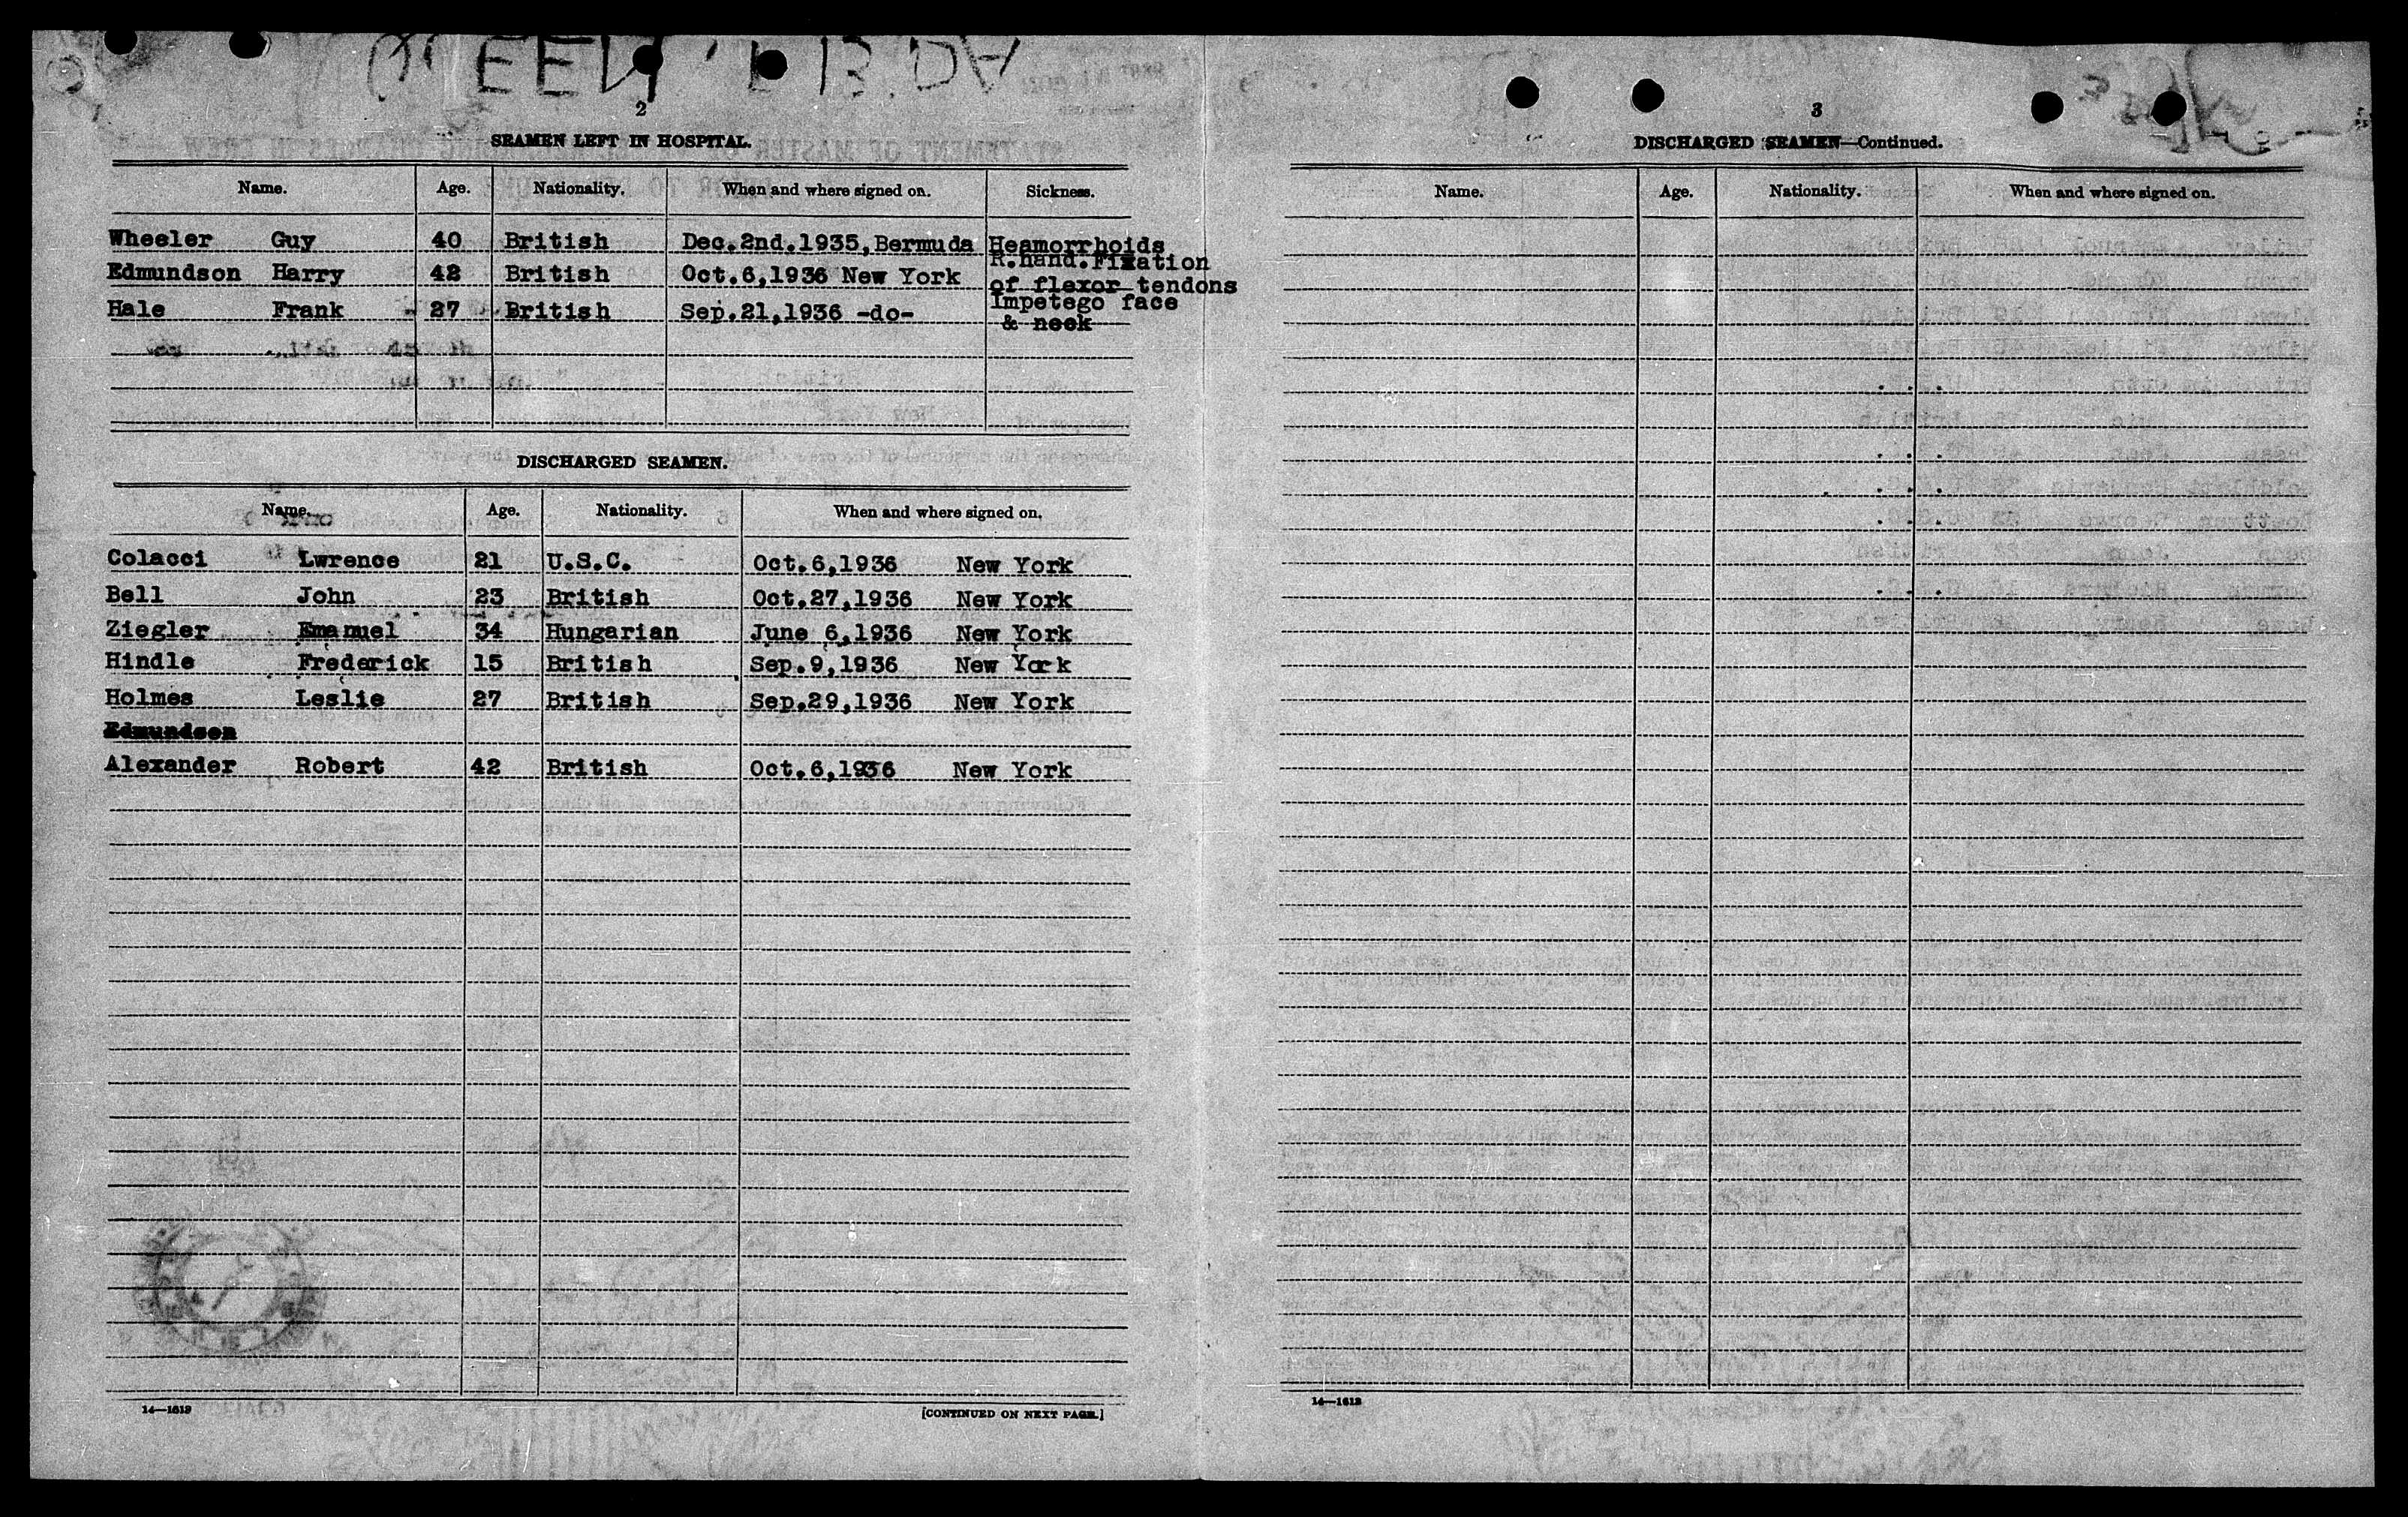 QUEEN B.DA
2
SEAMEN LEFT IN HOSPITAL.
Name. Age. Nationality. When and where signed on. Sickness.
Wheeler Guy 40 British Dec.2nd.1935,Bermuda Heamorrhoids
Edmundson Harry 42 British Oct.6,1936 New York R.hand.Fixation
of flexor tendons
Hale Frank 27 British Sep.21,1936 -do- Impetego face
& neck
DISCHARGED SEAMEN.
Name. Age. Nationality. When and where signed on.
Colacci Lwrence 21 U.S.C. Oct.6,1936 New York
Bell John 23 British Oct.27,1936 New York
Ziegler Emanuel 34 Hungarian June 6,1936 New York
Hindle Frederick 15 British Sep.9,1936 New York
Holmes Leslie 27 British Sep.29,1936 New York
Edmundson
Alexander Robert 42 British Oct.6,1936 New York
14—1613
[CONTINUED ON NEXT PAGE.]
3
DISCHARGED SEAMEN—Continued.
Name. Age. Nationality. When and where signed on.
14—1613